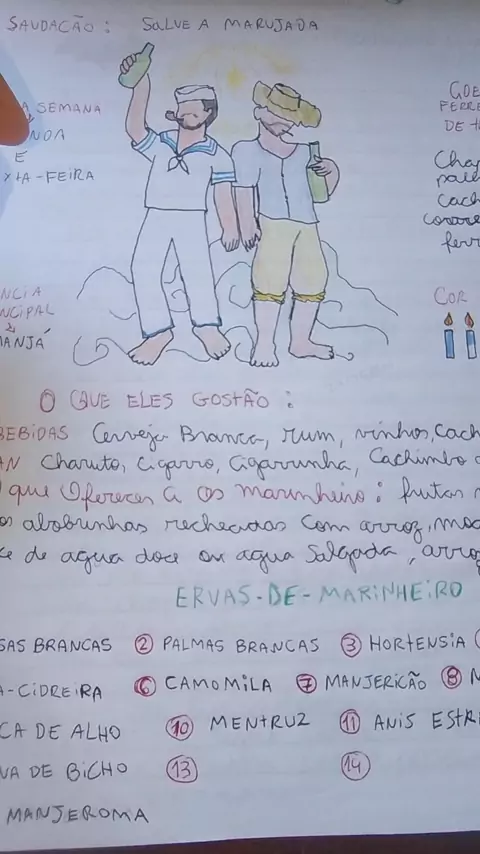 SAUDAÇÃO: SALVE A MARUJADA
A SEMANA
E
XTA-FEIRA
NCIA
NCIPAL
MANJÁ
GOE
FERRE
DE
Chap
palh
Cach
ferr
COR
O QUE ELES GOSTÃO:
BEBIDAS Cerveja Branca, rum, vinhos, Cach
AN Charuto, Cigarro, Cigarrinha, Cachimbo
que Oferecer a os marinheiro: frutas
os abobrinhas recheadas com arroz, mo
ce de agua doce ou agua Salgada, arro
ERVAS-DE-MARINHEIRO
SAS BRANCAS 2 PALMAS BRANCAS 3 HORTENSIA
A-CIDREIRA 6 CAMOMILA 7 MANJERICÃO 8
CA DE ALHO 10 MENTRUZ 11 ANIS ESTR
VA DE BICHO 13 14
MANJEROMA